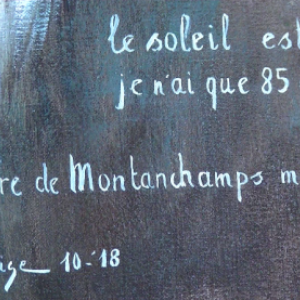 le soleil es
je n'ai que 85
re de Montanchamps m
ige 10-18